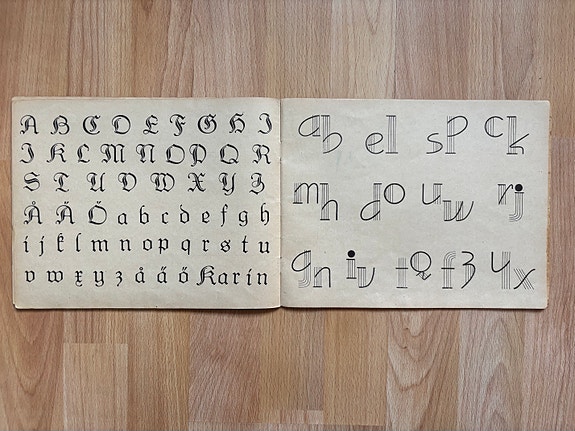 A B C D E F G H I
J K L M N O P Q R
S T U V W X Y Z
Å Ä Ö a b c d e f g h
i j k l m n o p q r s t u
v w x y z å ä ö Karin
ab el sp ck
mh do uw rj
gn iv tq fz yx